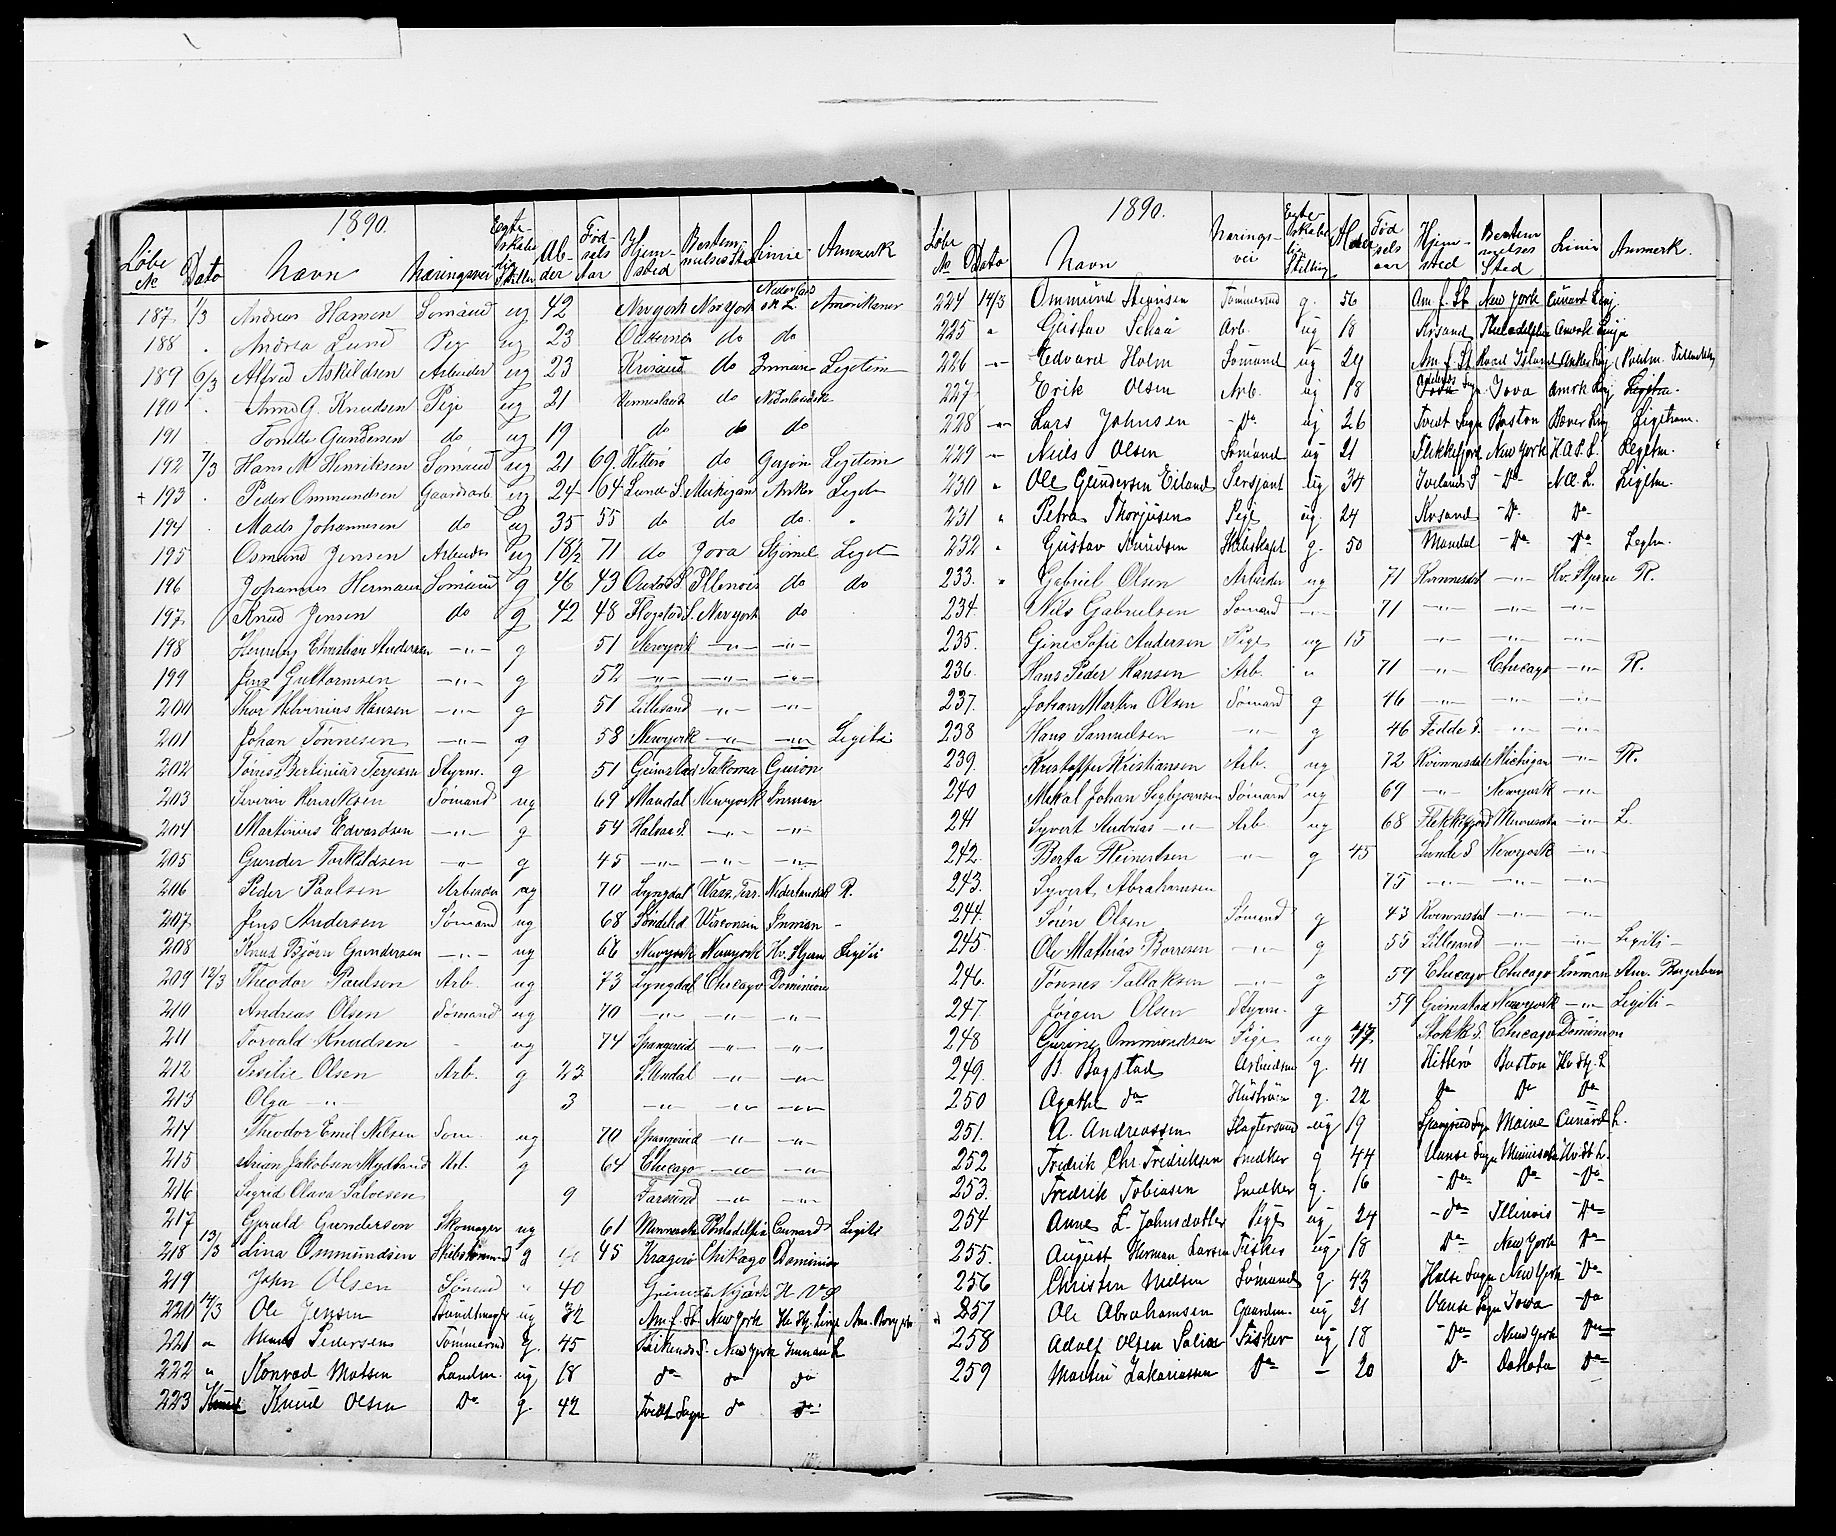 1890.
Løbe No Dato Navn Næringsvei Egteskabelig Stilling Alder Fødselsaar Hjemsted Bestemmelsessted Linie Anmerk
187 1/3 Andreas Hansen Sømand ug 42 Newyork Newyork Amerikaner
188 Andrea Lund Pige ug 23 Oddernes do do
189 6/3 Alfred Askildsen Arbeider ug 23 Krisand do Inman Legetim
190 Anne G. Knudsen Pige ug 21 Venneslands do Nederlandsk
191 Tomette Gundersen do ug 19 do do do
192 7/3 Hans M Henriksen Sømand ug 21 69 Hitterø do Legetim
+ 193 Peder Ommundsen Gaardsarb ug 24 64 Lunde S. Michigan Anker Leget
194 Mads Johannesen do ug 35 55 do do do "
195 Osmund Jensen Arbeider ug 18 1/2 71 do Jova Stjerne L Leget
196 Johannes Hermansen Sømand g 46 43 Illenois do do
197 Knud Jensen do g 42 48 Flogstad S. Newyork do
198 Henning Christian Andersen -"- g 51 Newyork -"- -"-
199 Jens Guttormsen -"- g 52 -"- -"- -"-
200 Thor Helvinius Hansen -"- g 51 Lillesand -"- -"-
201 Johan Tønnesen -"- g 58 Newyork -"- -"- Legiti
202 Tønes Berlinius Terjesen Styrm. g 51 Grimstad Takoma Guion
203 Severin Henriksen Sømand ug 69 Mandal Newyork Inman
204 Martinius Edvardsen -"- g 54 Halsaa S. -"- -"-
205 Gunder Torkildsen -"- g 45 -"- -"- -"-
206 Peder Paulsen Arbeider ug 70 Lyngdal Wass. Terr. Nederlandsk R.
207 Jens Andersen Sømand ug 68 Søndeled Wisconsin Inman -
208 Knud Bjørn Gundersen -"- ug 66 Newyork Newyork Hv. Stjerne Legiti
209 12/3 Theodor Paulsen Arb. ug 73 Lyngdal Chicago Dominion
210 Andreas Olsen Sømand ug 70 -"- -"- -"-
211 Torvald Knudsen - ug 74 Spangereid -"- -"-
212 Sesilie Olsen Arb. g 23 S. Undal -"- -"-
213 Olga -"- 3 -"- -"- -"-
214 Theodor Emil Nilsen Søm. ug 70 Spangereid -"- -"-
215 Arian Jakobsen Mydland Arb. g 64 Chicago -"- -"-
216 Sigrid Olava Salvesen 9 Farsund -"- -"-
217 Gerald Gundersen Skomager ug 61 Philadelfia Cunard Legiti
218 13/3 Lina Ommundsen g 45 Kragerø Chikago Dominion
219 John Olsen Sømand " 40 H. V. S.
220 14/3 Ole Jensen ug 32 Am. f. St. New York Hv. Stj. Linje Am. Borger
221 " Pedersen Tømmermd g. 45 Birkenes S. New York Inman L
222 " Konrad Matsen Landm. ug 18 do do do
223 Knud Knud Olsen Do g. 42 Tvedt Sogn do do
1890.
Løbe No Dato Navn Næringsvei Egteskabelig Stilling Alder Fødselsaar Hjemsted Bestemmelses Sted Linie Anmerk.
224 14/3 Ommund Stenisen Tømmermd g. 56 Am. f. St. New York Cunard Linj.
225 " Gustav Schaa Arb. ug 18 Krsand Philadelphia Amerk Linje
226 -"- Edvard Holm Sømand ug 29 Am. f. St. Road Island Anker Linj
227 Erik Olsen Arb. ug 18 Jova Amrk Linj Legitm.
228 -"- Lars Johnsen -Do- ug 26 Tvedt Sogn Boston Bever Linj Ligitam.
229 -"- Niels Olsen Sømand ug 21 Flekkefjord New York H. A. S. L. Legitm.
230 " Ole Gundersen Eiland Sersjant ug 34 Ivelands S -Do- N. A. L. Ligitm.
231 " Petra Thorjusen Pige ug. 24 Krsand -Do- Do
232 " Gustav Knudsen Skibskapt g. 50 Mandal -Do- -Do- Legtm.
233. " Gabriel Olsen Arbeider ug 71 Kvinnesdal -"- Hv. Stjerne R.
234 Nils Gabrielsen Sømand -"- 71 -"- -"- -"-
235. Gine Sofie Andersen Pige ug 15 -"- -"- -"-
236. Hans Peder Hansen Arb. " 71 -"- Chicago -"- R.
237. Johan Martin Olsen Sømand g 46 -"- -"- -"-
238 Hans Samuelsen -"- g 46 Fedde S. -"- -"-
239. Kristoffer Kristiansen Arb. ug 72 Kvinnesdal Michigan -"- R.
240 Mikal Johan Sigbjørnsen Sømand ug 69 -"- Newyork -"-
241 Syvert Andreas -"- Arb. ug 68 Flekkefjord Mennesota -"- L.
242. Berta Reinertsen -"- g 45 Lunde S Newyork -"-
243. Syvert Abrahamsen 75 -"- -"- -"-
244. Søren Olsen Sømand g 43 Kvinnesdal -"- -"-
245. Ole Mathias Børresen -"- g 55 Lillesand -"- -"- Legiti-
246. Tønnes Tallaksen -"- g 57 Chicago Chicago Inman Am. Borgerbrev
247. Jørgen Olsen Styrm. g 59 Grimstad Newyork -"- Legiti-
248 Gurine Ommundsen Pige ug 47 Stokke S. Chicago Dominion
249. B. Bagstad Arbeidsm g. 41 Hitterø Boston Hv. Stj. L
250 Agathe Do Hustru g. 22 Do Do Do
251. A. Andreassen ug 19 Spangreid Sogn Maine Cunard L.
252 Fredrik Chr. Fredriksen Snedker g 44 Vanse Sogn Minnesota Hv. St L.
253. Fredrik Tobiasen Snedker g. 16 -Do- Do -Do-
254 Anne L. Johnsdatter Pige ug 24 -Do- Illinois -Do-
255. August Herman Larsen Fisker ug 18 Do New York Do
256 Christen Nielsen Sømand g 43 Halse Sogn New York -Do-
257 Ole Abrahamsen Gaardm. ug 21 Vanse Sogn Iowa Do
258 Adolf Olsen Fisker ug 18 -Do- New York Do
259 Martin Zakariassen Do - 20 Do Dakota Do